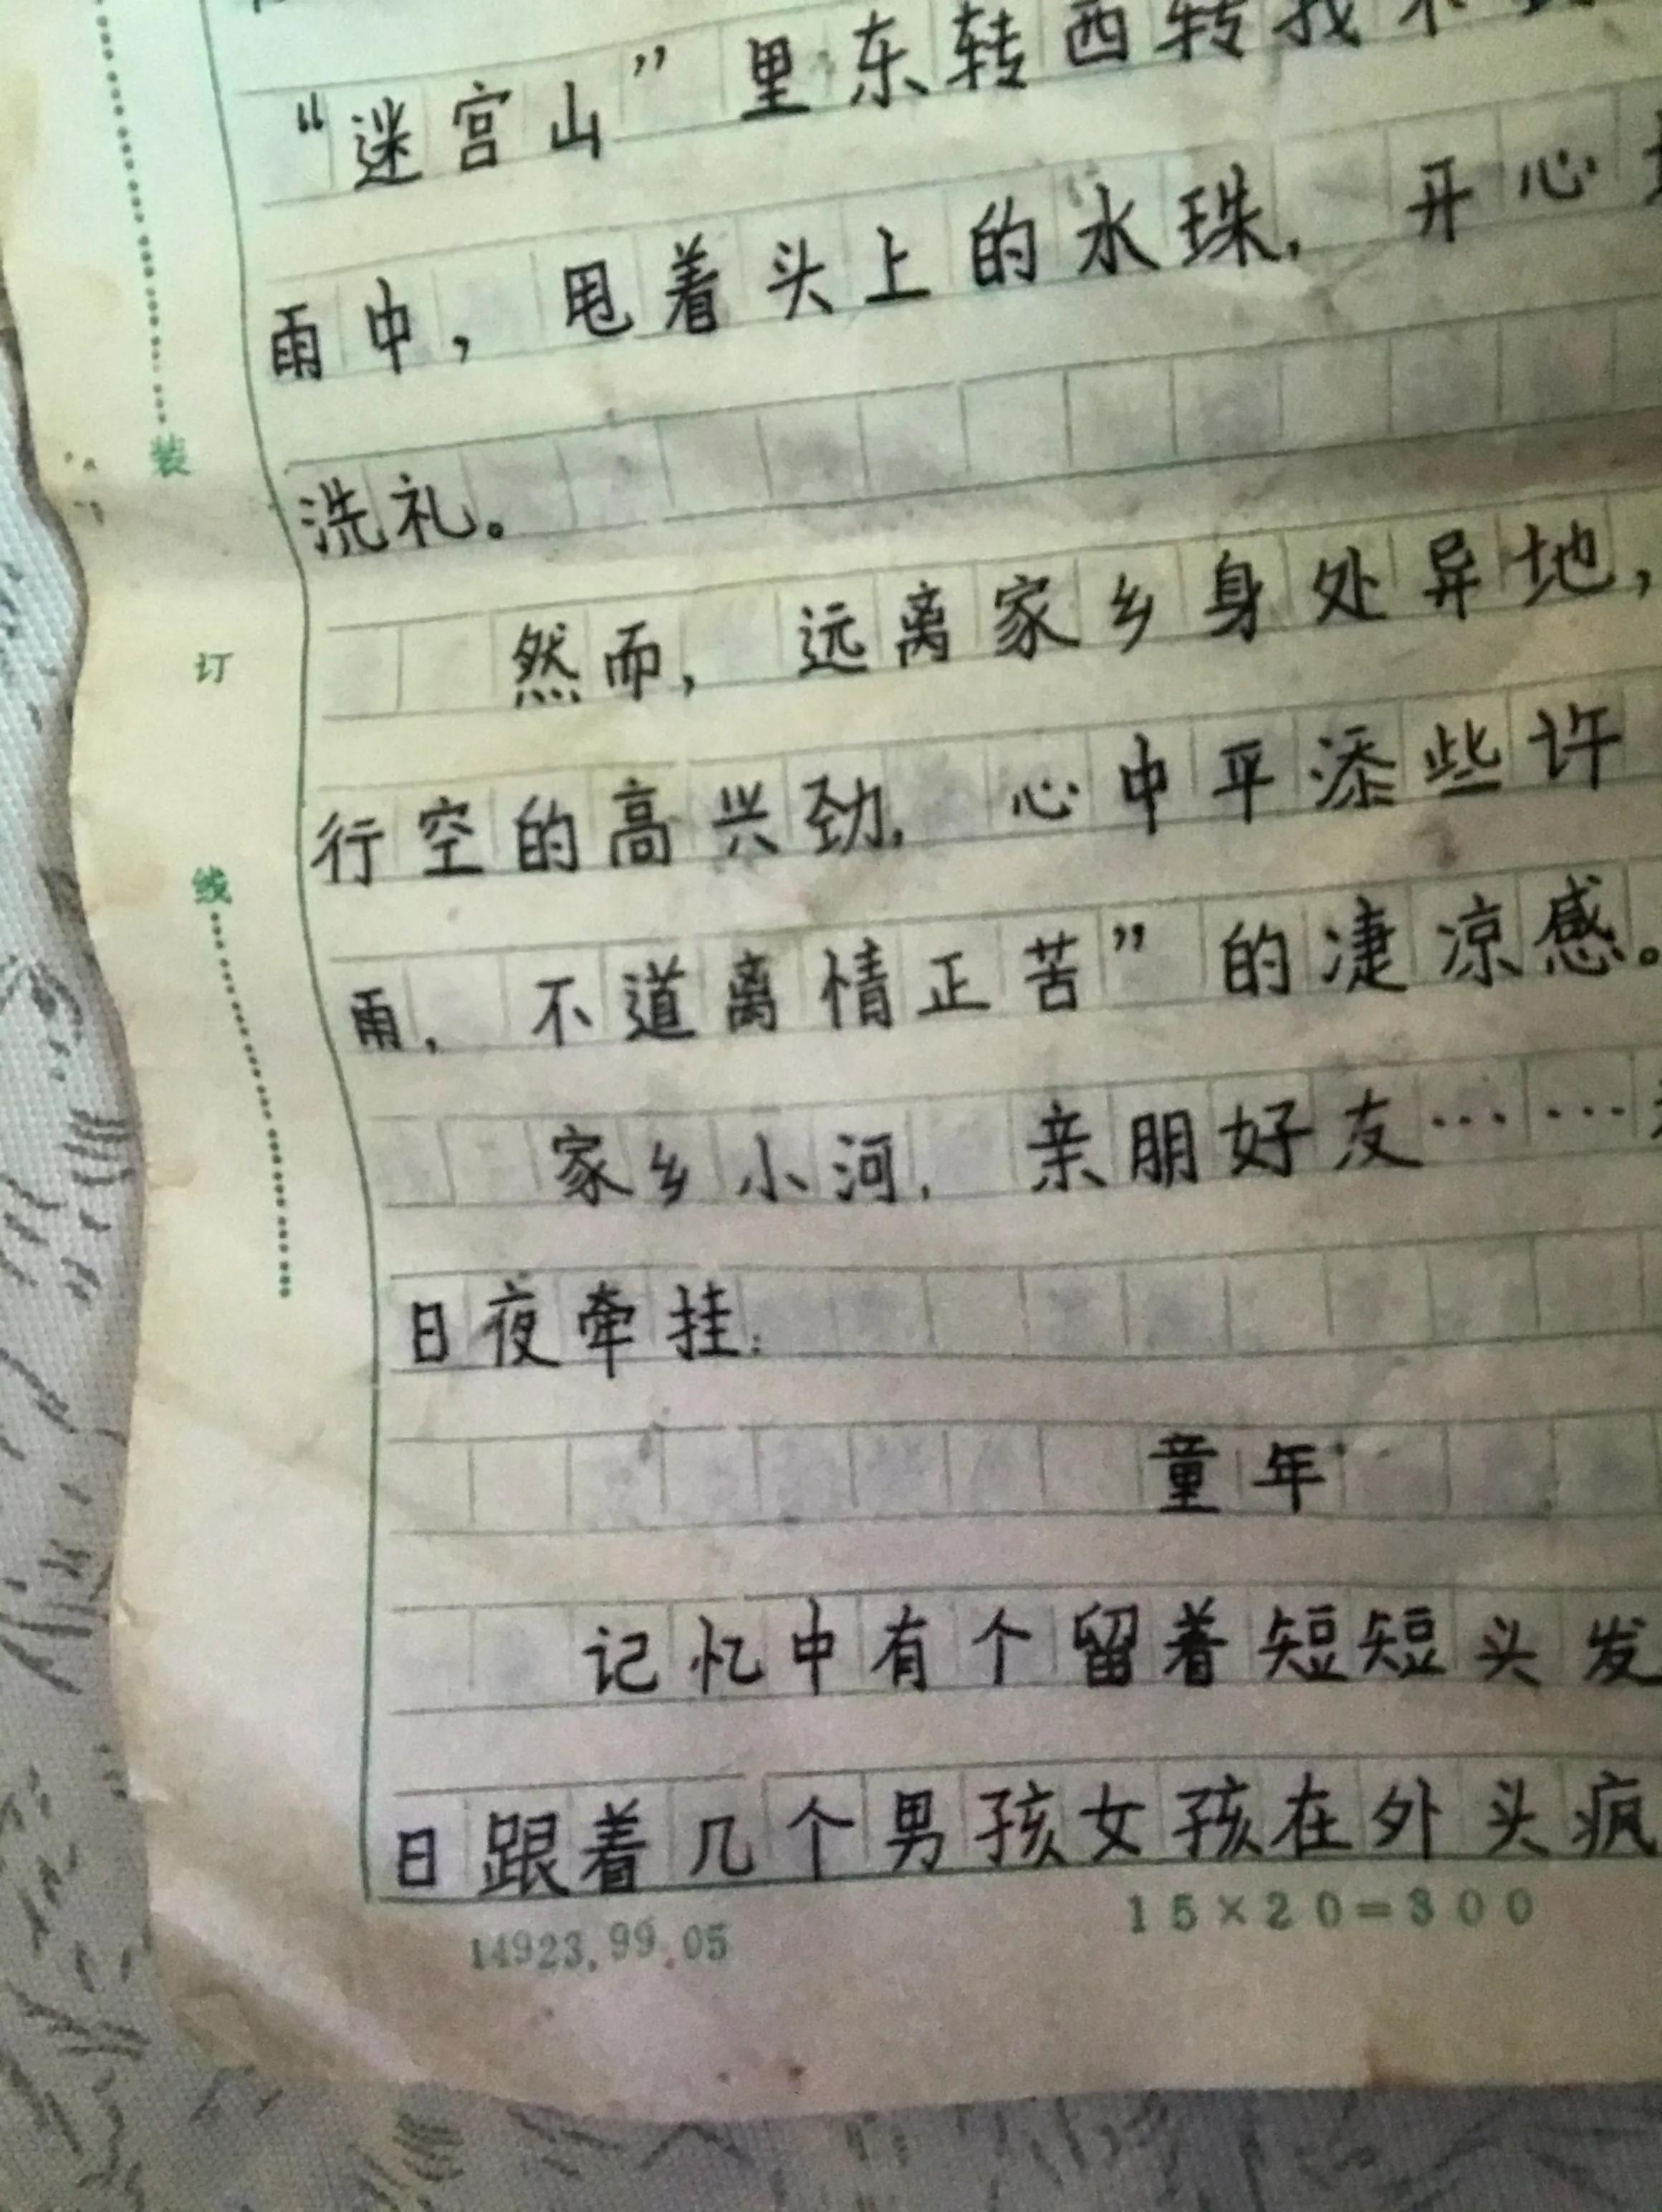 “迷宫山”里东转西转找不
雨中，甩着头上的水珠，开心
洗礼。
然而，远离家乡身处异地，
行空的高兴劲，心中平添些许
雨，不道离情正苦”的凄凉感。
家乡小河，亲朋好友……
日夜牵挂。
童年
记忆中有个留着短短头发
日跟着几个男孩女孩在外头疯
装
订
线
14923.99.05
15×20=300